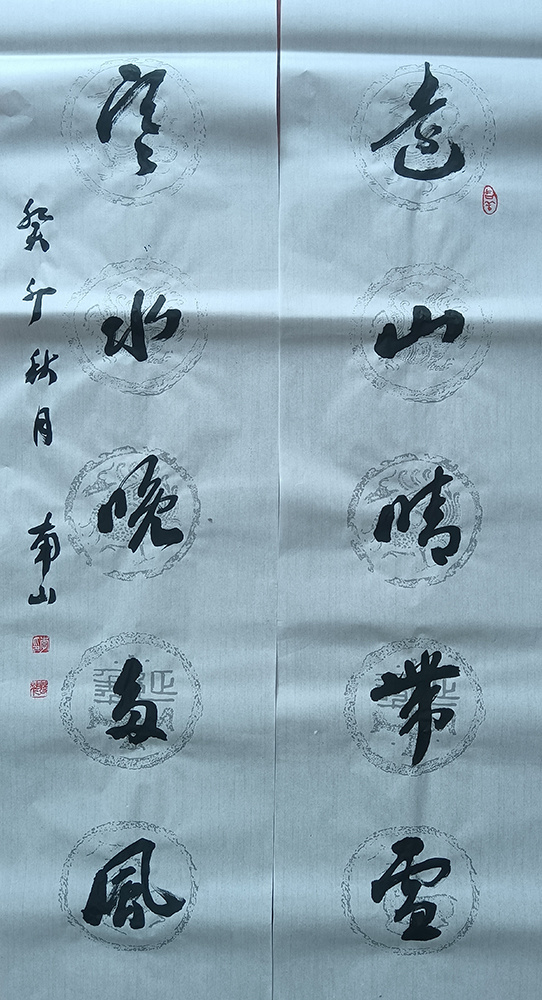 远山晴带雪
寒水晚多风
癸卯秋月 南山